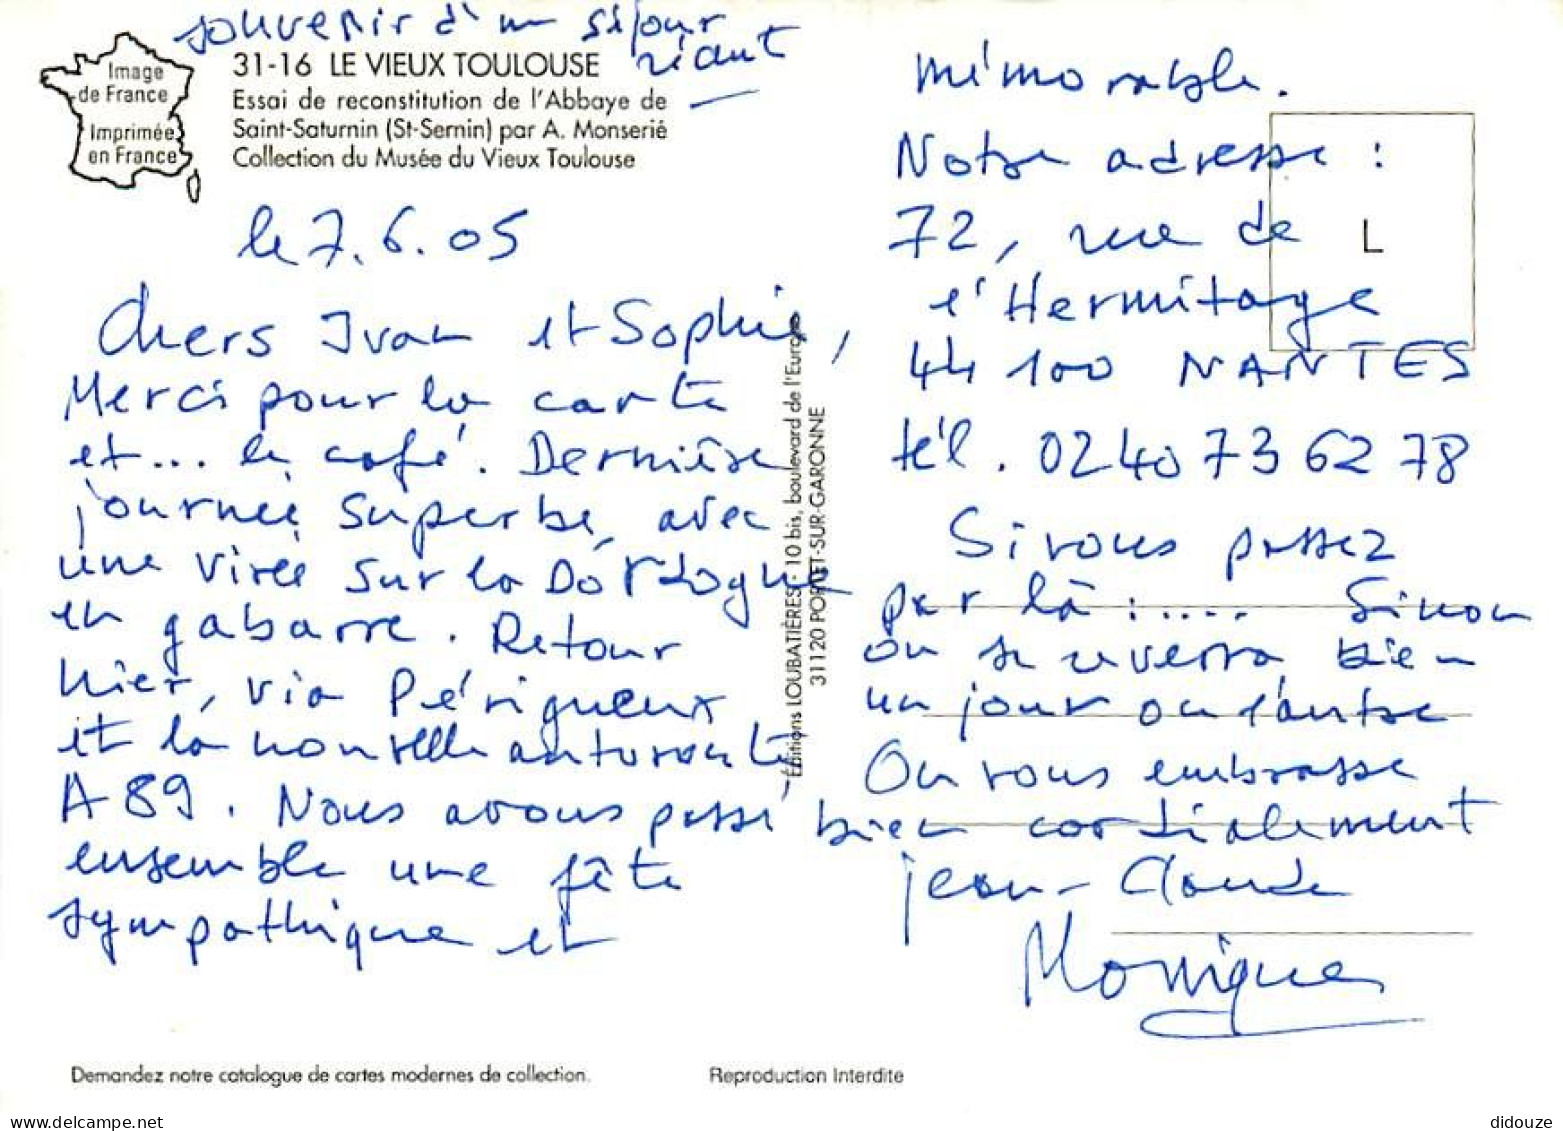 souvenir d'un séjour
riant
Image
de France
Imprimée
en France
31-16 LE VIEUX TOULOUSE
Essai de reconstitution de l'Abbaye de
Saint-Saturnin (St-Sernin) par A. Monserié
Collection du Musée du Vieux Toulouse
le 7.6.05
Chers Ivan et Sophie,
Merci pour la carte
et... le café. Dernière
journée superbe, avec
une virée sur la Dordogne
en gabarre. Retour
hier, via Périgueux
et la nouvelle autoroute
A 89. Nous avons passé
ensemble une fête
sympathique et
Editions LOUBATIÈRES - 10 bis, boulevard de l'Europe
31120 PORTET-SUR-GARONNE
mémorable.
Notre adresse :
72, rue de
l'Hermitage
44 100 NANTES
tél. 02 40 73 62 78
L
Si vous passez
par là : .... Sinon
on se reverra bien
un jour ou l'autre
On vous embrasse
bien cordialement
Jean-Claude
Monique
Demandez notre catalogue de cartes modernes de collection.
Reproduction Interdite
www.delcampe.net
didouze